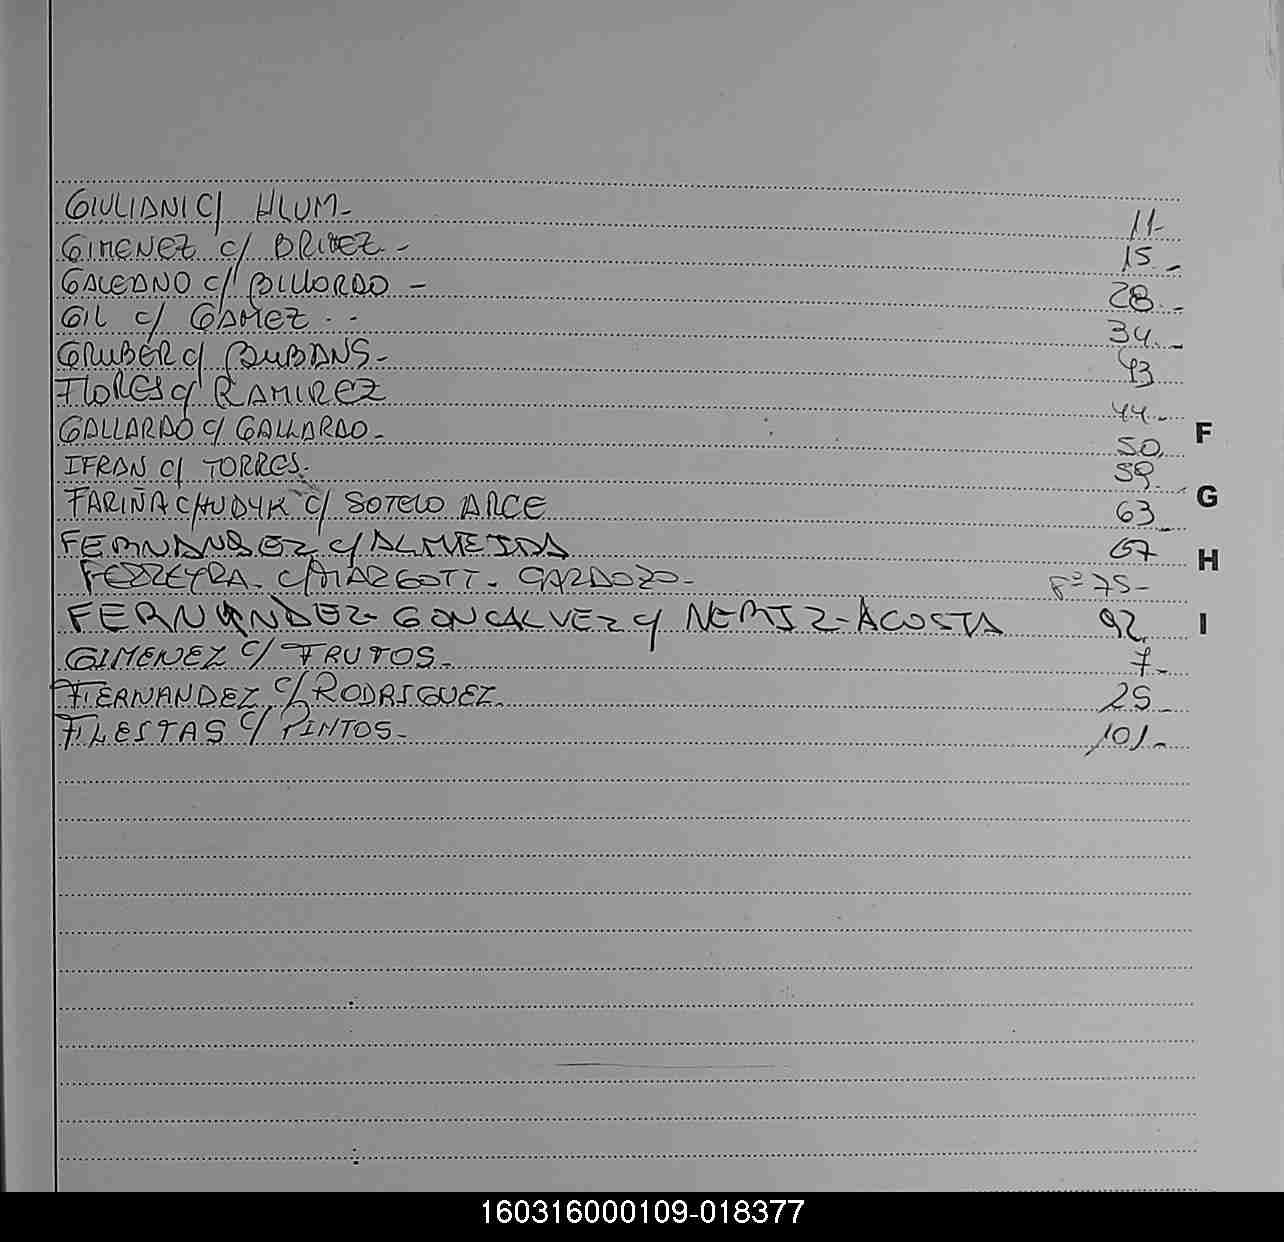 GIULIANI C/ HLUM- 11-
GIMENEZ C/ BRITEZ.- 15.-
GALEANO C/ BILLORDO - 28.-
GIL C/ GAMEZ.- 34.-
GRUBER C/ 43
FLORES C/ RAMIREZ 44.-
GALLARDO C/ GALLARDO.- 50.
F
IFRAN C/ TORRES. 59
FARIÑA CHUDYK C/ SOTELO ARCE 63.-
G
FERNANDEZ C/ ALMEIDA 67
H
FERREYRA. C/ MARGOTT. CARDOZO- Fº 75-
FERNANDEZ- GONCALVEZ C/ NERIZ-ACOSTA 92.
I
GIMENEZ C/ FRUTOS.- 7.-
FERNANDEZ C/ RODRIGUEZ. 25.-
FLEITAS C/ PINTOS.- 101.-
160316000109-018377